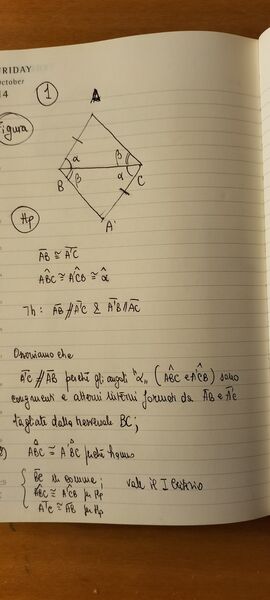 FRIDAY
October
14
1
Figura
A
α
β
B
β
α
C
A'
Hp
AB ≅ A'C
AB̂C ≅ A'ĈB ≅ α̂
Th: AB // A'C & A'B // AC
Osserviamo che
A'C // AB perché gli angoli "α" (AB̂C e A'ĈB) sono
congruenti e alterni interni formati da AB e A'C
tagliate dalla trasversale BC;
ABC ≅ A'BC perché hanno
BC in comune; vale il I Criterio
AB̂C ≅ A'ĈB per Hp
A'C ≅ AB per Hp